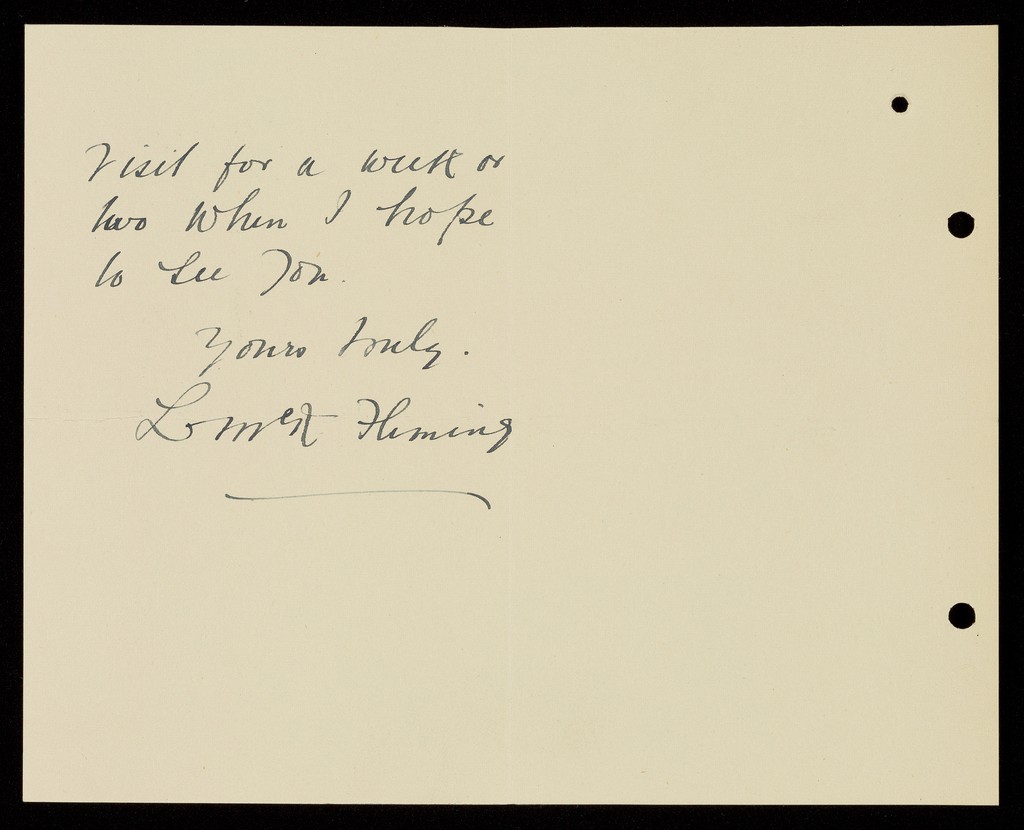 Visit for a week or
two when I hope
to see you.
Yours truly.
Fleming